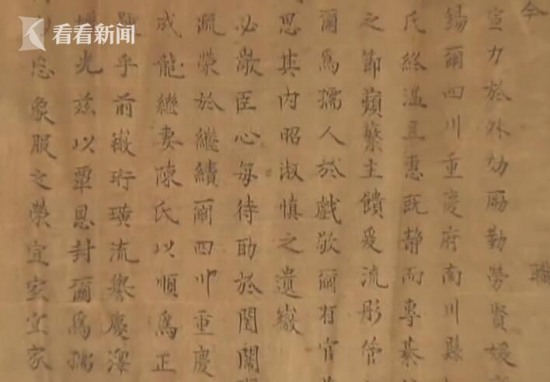 看看新闻
今
宣力於外劬勵勤勞賢媛
錫爾四川重慶府南川縣
氏終溫且惠既靜而專綦
之節蘋蘩主饋爰流彤管
爾為孺人於戲敬爾有官
思其內昭淑慎之遺徽
必臣心每待助於閨闈
流榮於繼續爾四川重慶
成龍繼妻陳氏以順為正
乎前徽珩璜流譽慶澤
光茲以覃恩封爾為孺
象服之榮宜室宜家